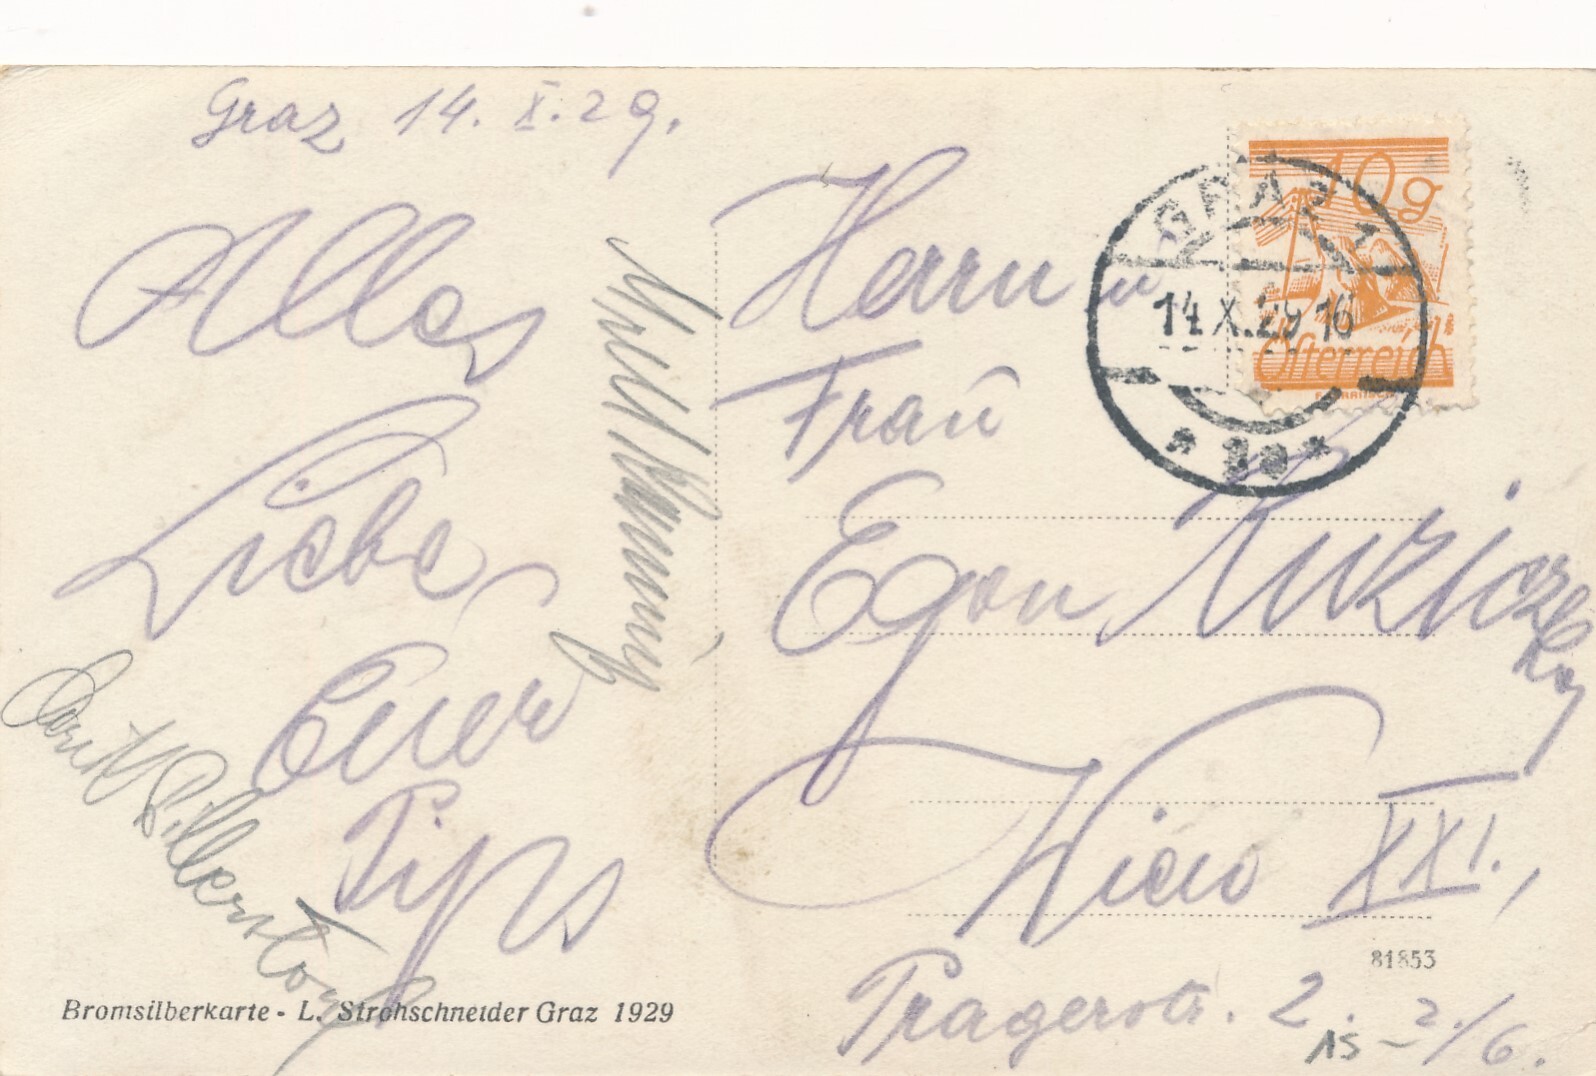 Graz 14. X. 29.
Alles
Liebe
Euer
Pips
Herrn u
Frau
Egon
Wien XXI.,
Pragerstr. 2. 2./6.
15 -
10g
Österreich
GRAZ 1
14.X.29 16
* 2a *
81853
Bromsilberkarte - L. Strohschneider Graz 1929